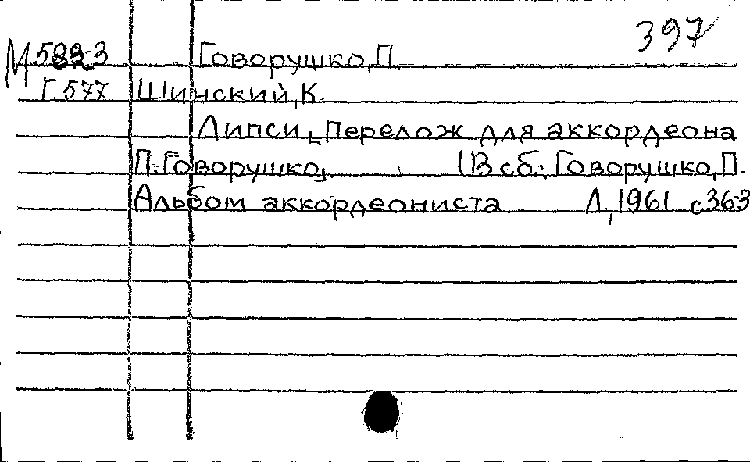 397
М 5883 Говорушко, П.
Г 577 Шинский, К.
Липси, Перелож для аккордеона
П. Говорушко, (В сб.: Говорушко, П.
Альбом аккордеониста Л, 1961 с 363